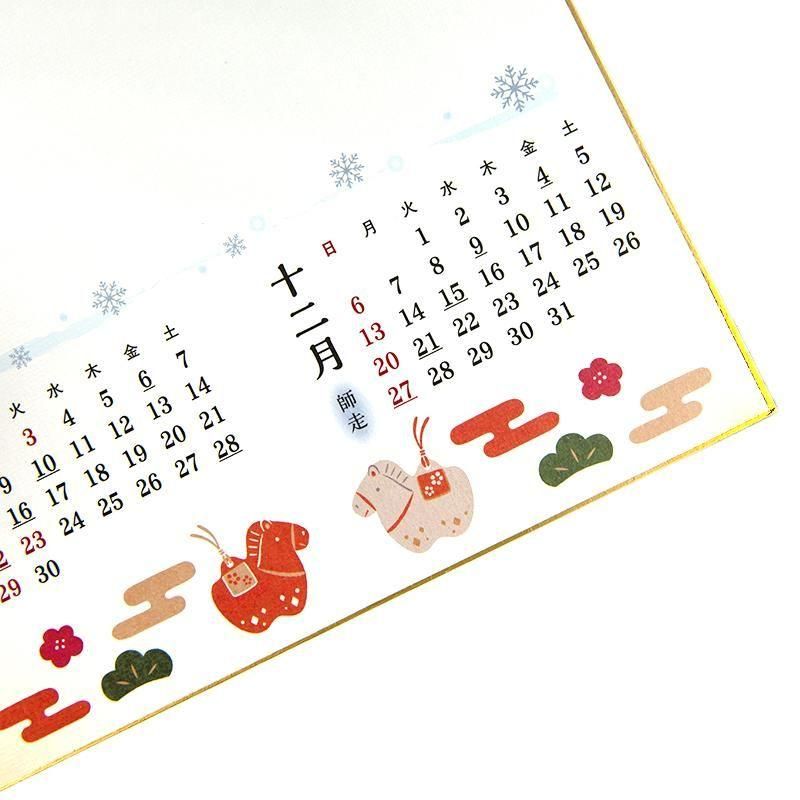 火 水 木 金 土
3 4 5 6 7
9 10 11 12 13 14
16 17 18 19 20 21
23 24 25 26 27 28
29 30
十二月
師走
日 月 火 水 木 金 土
1 2 3 4 5
6 7 8 9 10 11 12
13 14 15 16 17 18 19
20 21 22 23 24 25 26
27 28 29 30 31